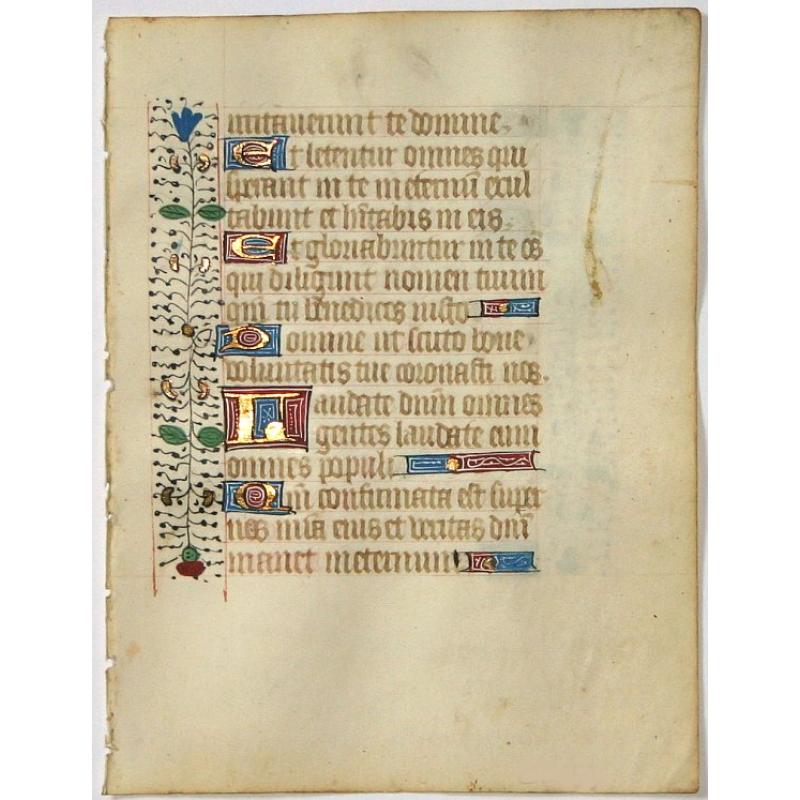 irritaverunt te domine.
Et letentur omnes qui
sperant in te in eternū exul
tabunt et hītabis in eis.
Et gloriabuntur in te oēs
qui diligunt nomen tuum
qm̄ tu benedices iusto
Domine ut scuto bone
voluntatis tue coronasti nos.
Laudate dn̄m omnes
gentes laudate eum
omnes populi
Qm̄ confirmata est super
nos mīa eius et veritas dn̄i
manet in eternum